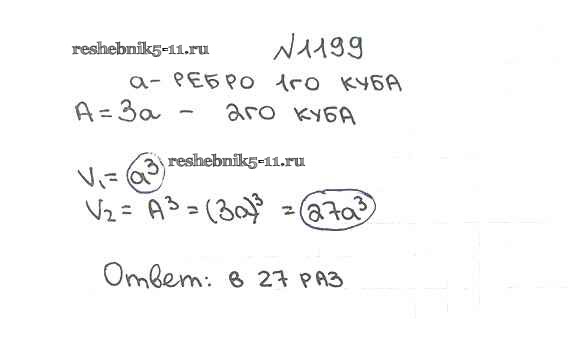 reshebnik5-11.ru №1199
а - РЕБРО 1ГО КУБА
А = 3а - 2ГО КУБА
reshebnik5-11.ru
V₁ = а³
V₂ = А³ = (3а)³ = 27а³
Ответ: в 27 РАЗ